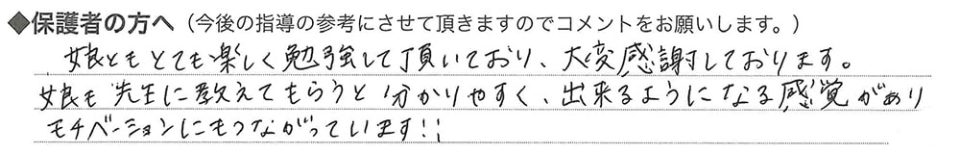 ◆保護者の方へ（今後の指導の参考にさせて頂きますのでコメントをお願いします。）
娘ともとても楽しく勉強して頂いており、大変感謝しております。
娘も先生に教えてもらうと分かりやすく、出来るようになる感覚があり
モチベーションにもつながっています!!